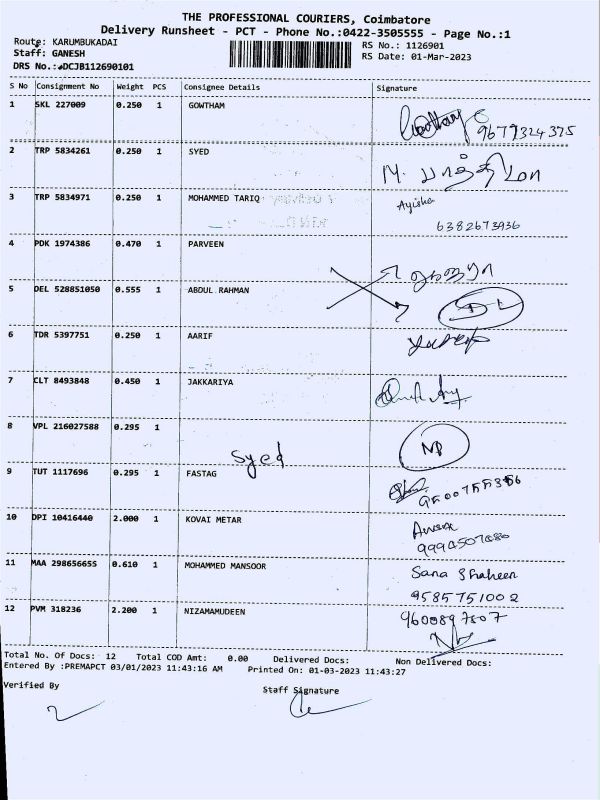 THE PROFESSIONAL COURIERS, Coimbatore
Delivery Runsheet - PCT - Phone No.:0422-3505555 - Page No.:1
Route: KARUMBUKADAI
Staff: GANESH
DRS No.: DCJB112690101
RS No.: 1126901
RS Date: 01-Mar-2023
S No Consignment No Weight PCS Consignee Details Signature
1 SKL 227009 0.250 1 GOWTHAM
9679324375
2 TRP 5834261 0.250 1 SYED
M.
3 TRP 5834971 0.250 1 MOHAMMED TARIQ Ayisha
6382673936
4 PDK 1974386 0.470 1 PARVEEN
5 DEL 528851050 0.555 1 ABDUL RAHMAN DL
6 TDR 5397751 0.250 1 AARIF
7 CLT 8493848 0.450 1 JAKKARIYA
8 VPL 216027588 0.295 1
Syed
9 TUT 1117696 0.295 1 FASTAG
10 DPI 10416440 2.000 1 KOVAI METAR
11 MAA 298656655 0.610 1 MOHAMMED MANSOOR Sana Shaheen
9585751002
12 PVM 318236 2.200 1 NIZAMAMUDEEN 9600897807
Total No. Of Docs: 12 Total COD Amt: 0.00 Delivered Docs: Non Delivered Docs:
Entered By :PREMAPCT 03/01/2023 11:43:16 AM Printed On: 01-03-2023 11:43:27
Verified By Staff Signature